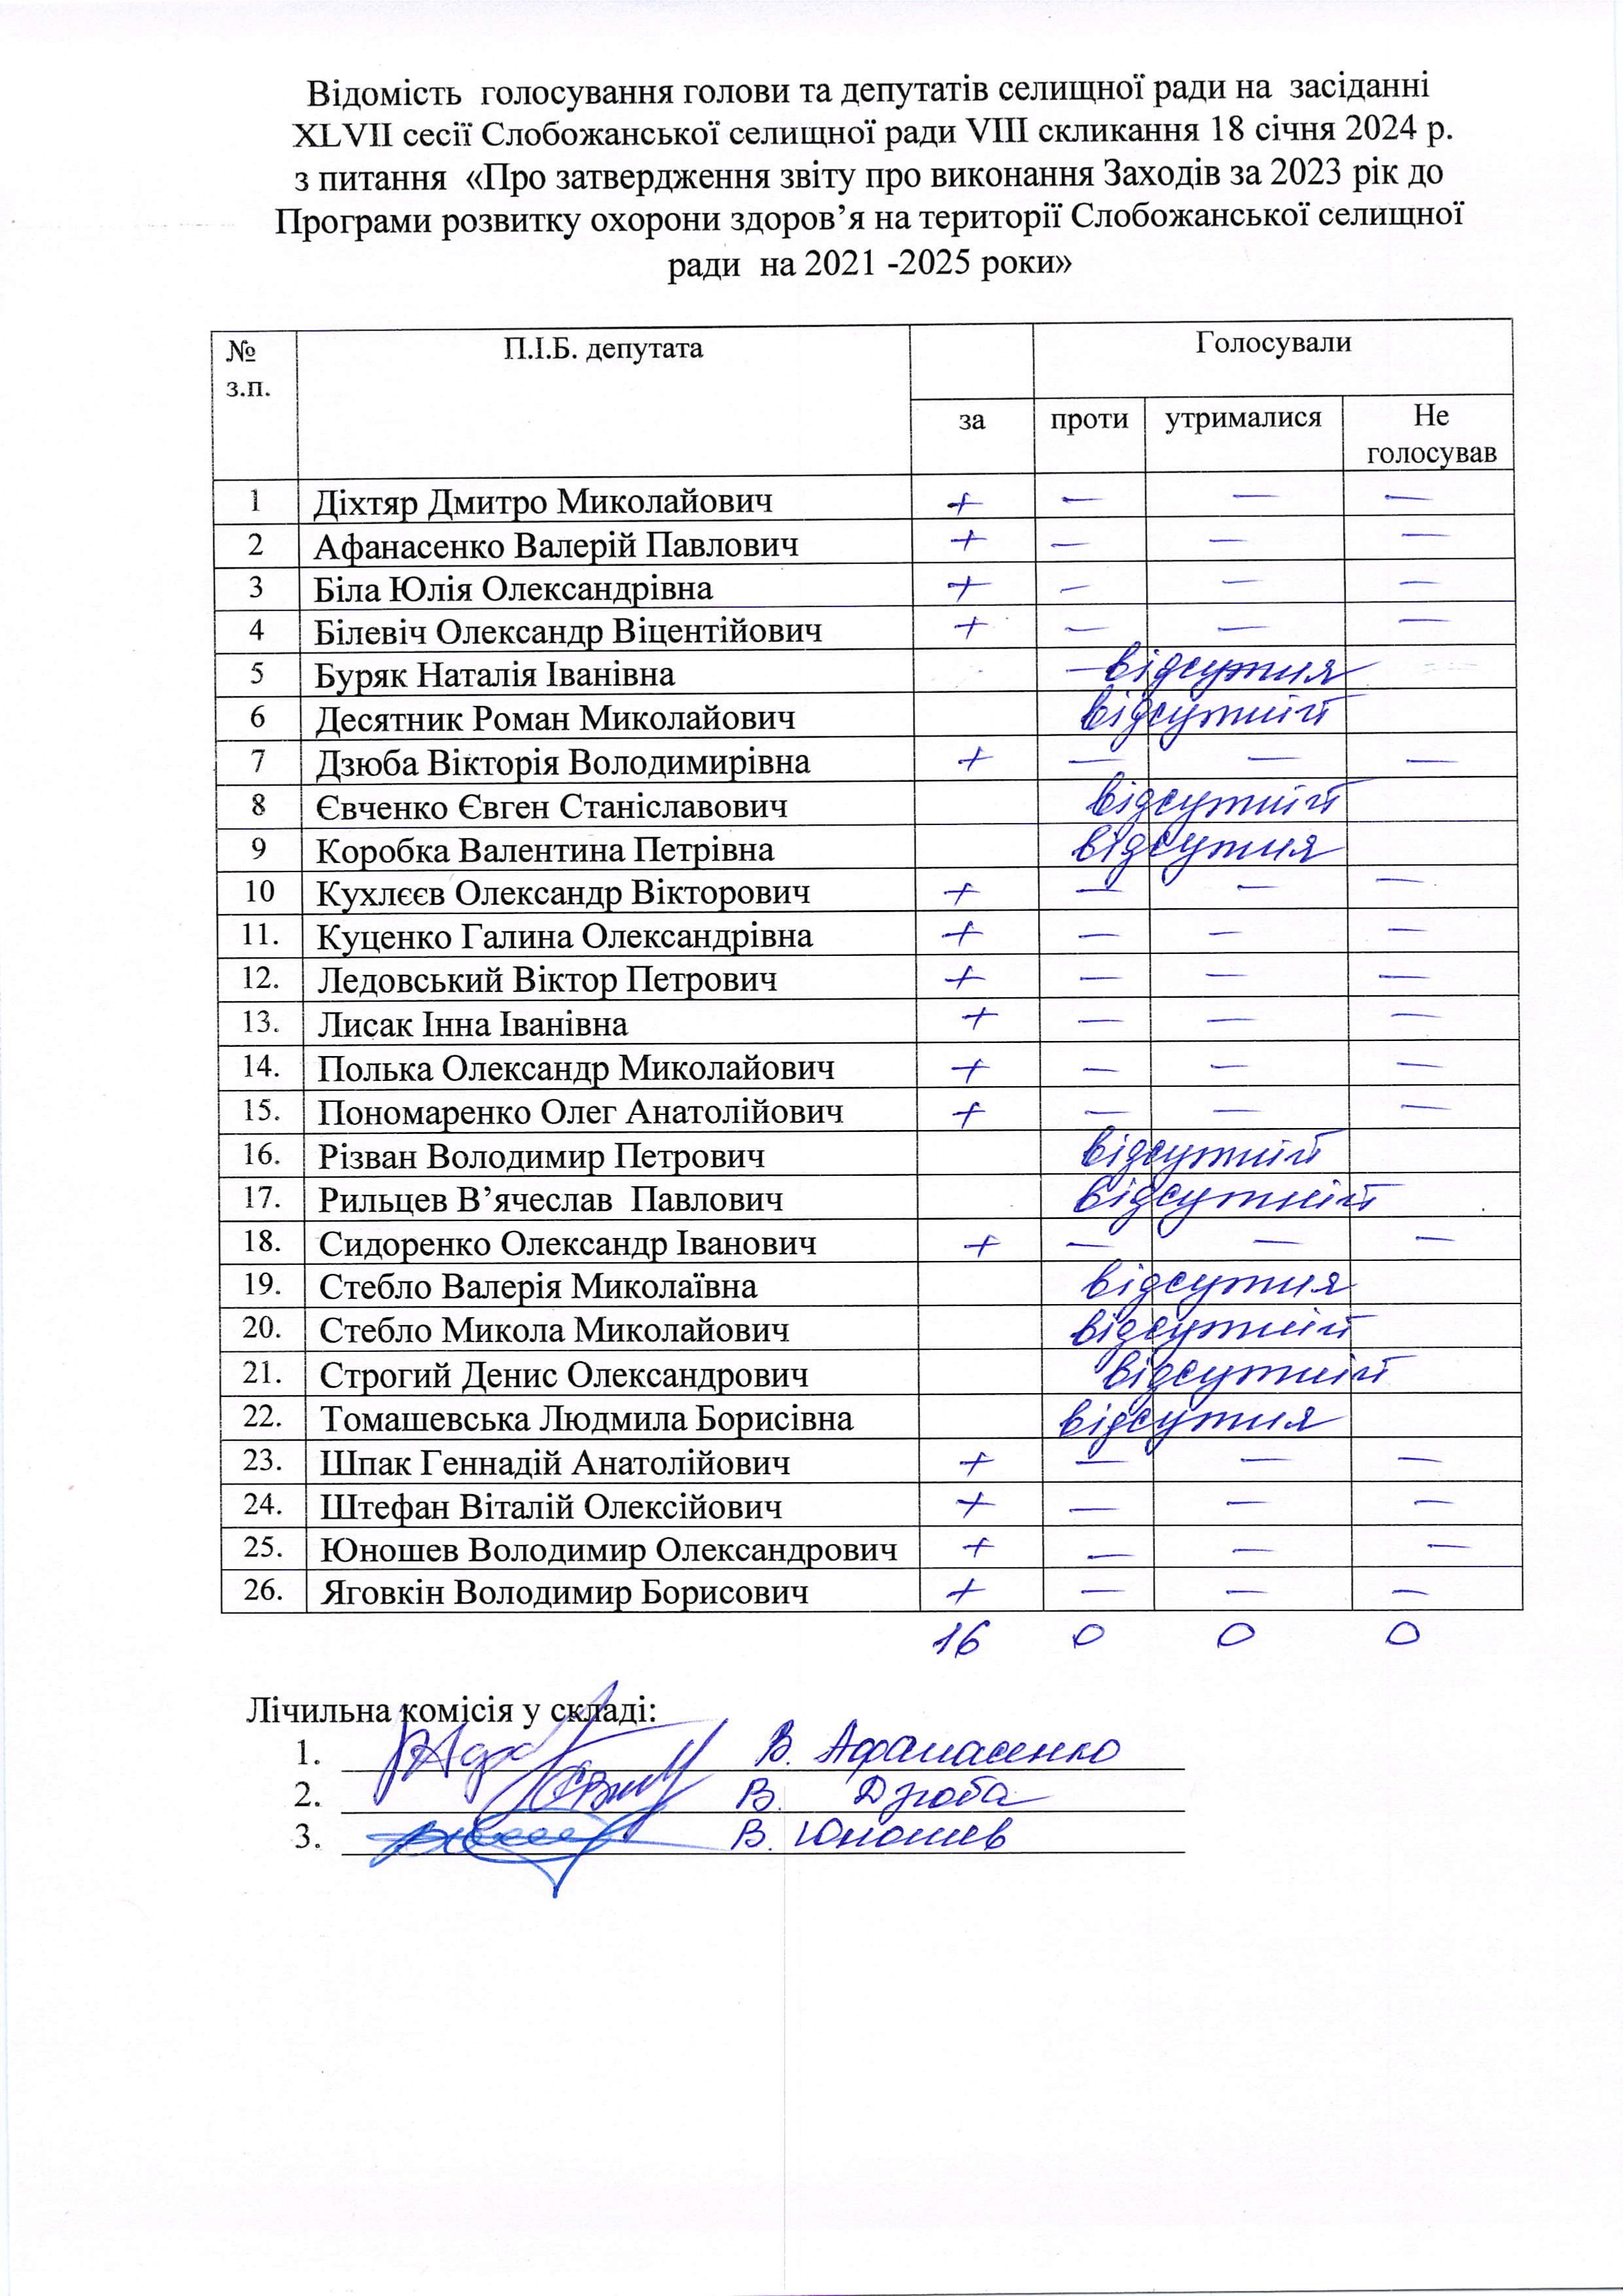 Відомість голосування голови та депутатів селищної ради на засіданні
XLVII сесії Слобожанської селищної ради VIII скликання 18 січня 2024 р.
з питання «Про затвердження звіту про виконання Заходів за 2023 рік до
Програми розвитку охорони здоров’я на території Слобожанської селищної
ради на 2021 -2025 роки»
№ з.п. П.І.Б. депутата Голосували
за проти утрималися Не голосував
1 Діхтяр Дмитро Миколайович + — — —
2 Афанасенко Валерій Павлович + — — —
3 Біла Юлія Олександрівна + — — —
4 Білевіч Олександр Віцентійович + — — —
5 Буряк Наталія Іванівна відсутня
6 Десятник Роман Миколайович відсутній
7 Дзюба Вікторія Володимирівна + — — —
8 Євченко Євген Станіславович відсутній
9 Коробка Валентина Петрівна відсутня
10 Кухлєєв Олександр Вікторович + — — —
11. Куценко Галина Олександрівна + — — —
12. Ледовський Віктор Петрович + — — —
13. Лисак Інна Іванівна + — — —
14. Полька Олександр Миколайович + — — —
15. Пономаренко Олег Анатолійович + — — —
16. Різван Володимир Петрович відсутній
17. Рильцев В’ячеслав Павлович відсутній
18. Сидоренко Олександр Іванович + — — —
19. Стебло Валерія Миколаївна відсутня
20. Стебло Микола Миколайович відсутній
21. Строгий Денис Олександрович відсутній
22. Томашевська Людмила Борисівна відсутня
23. Шпак Геннадій Анатолійович + — — —
24. Штефан Віталій Олексійович + — — —
25. Юношев Володимир Олександрович + — — —
26. Яговкін Володимир Борисович + — — —
16 0 0 0
Лічильна комісія у складі:
1. В. Афанасенко
2. В. Дзюба
3. В. Юношев